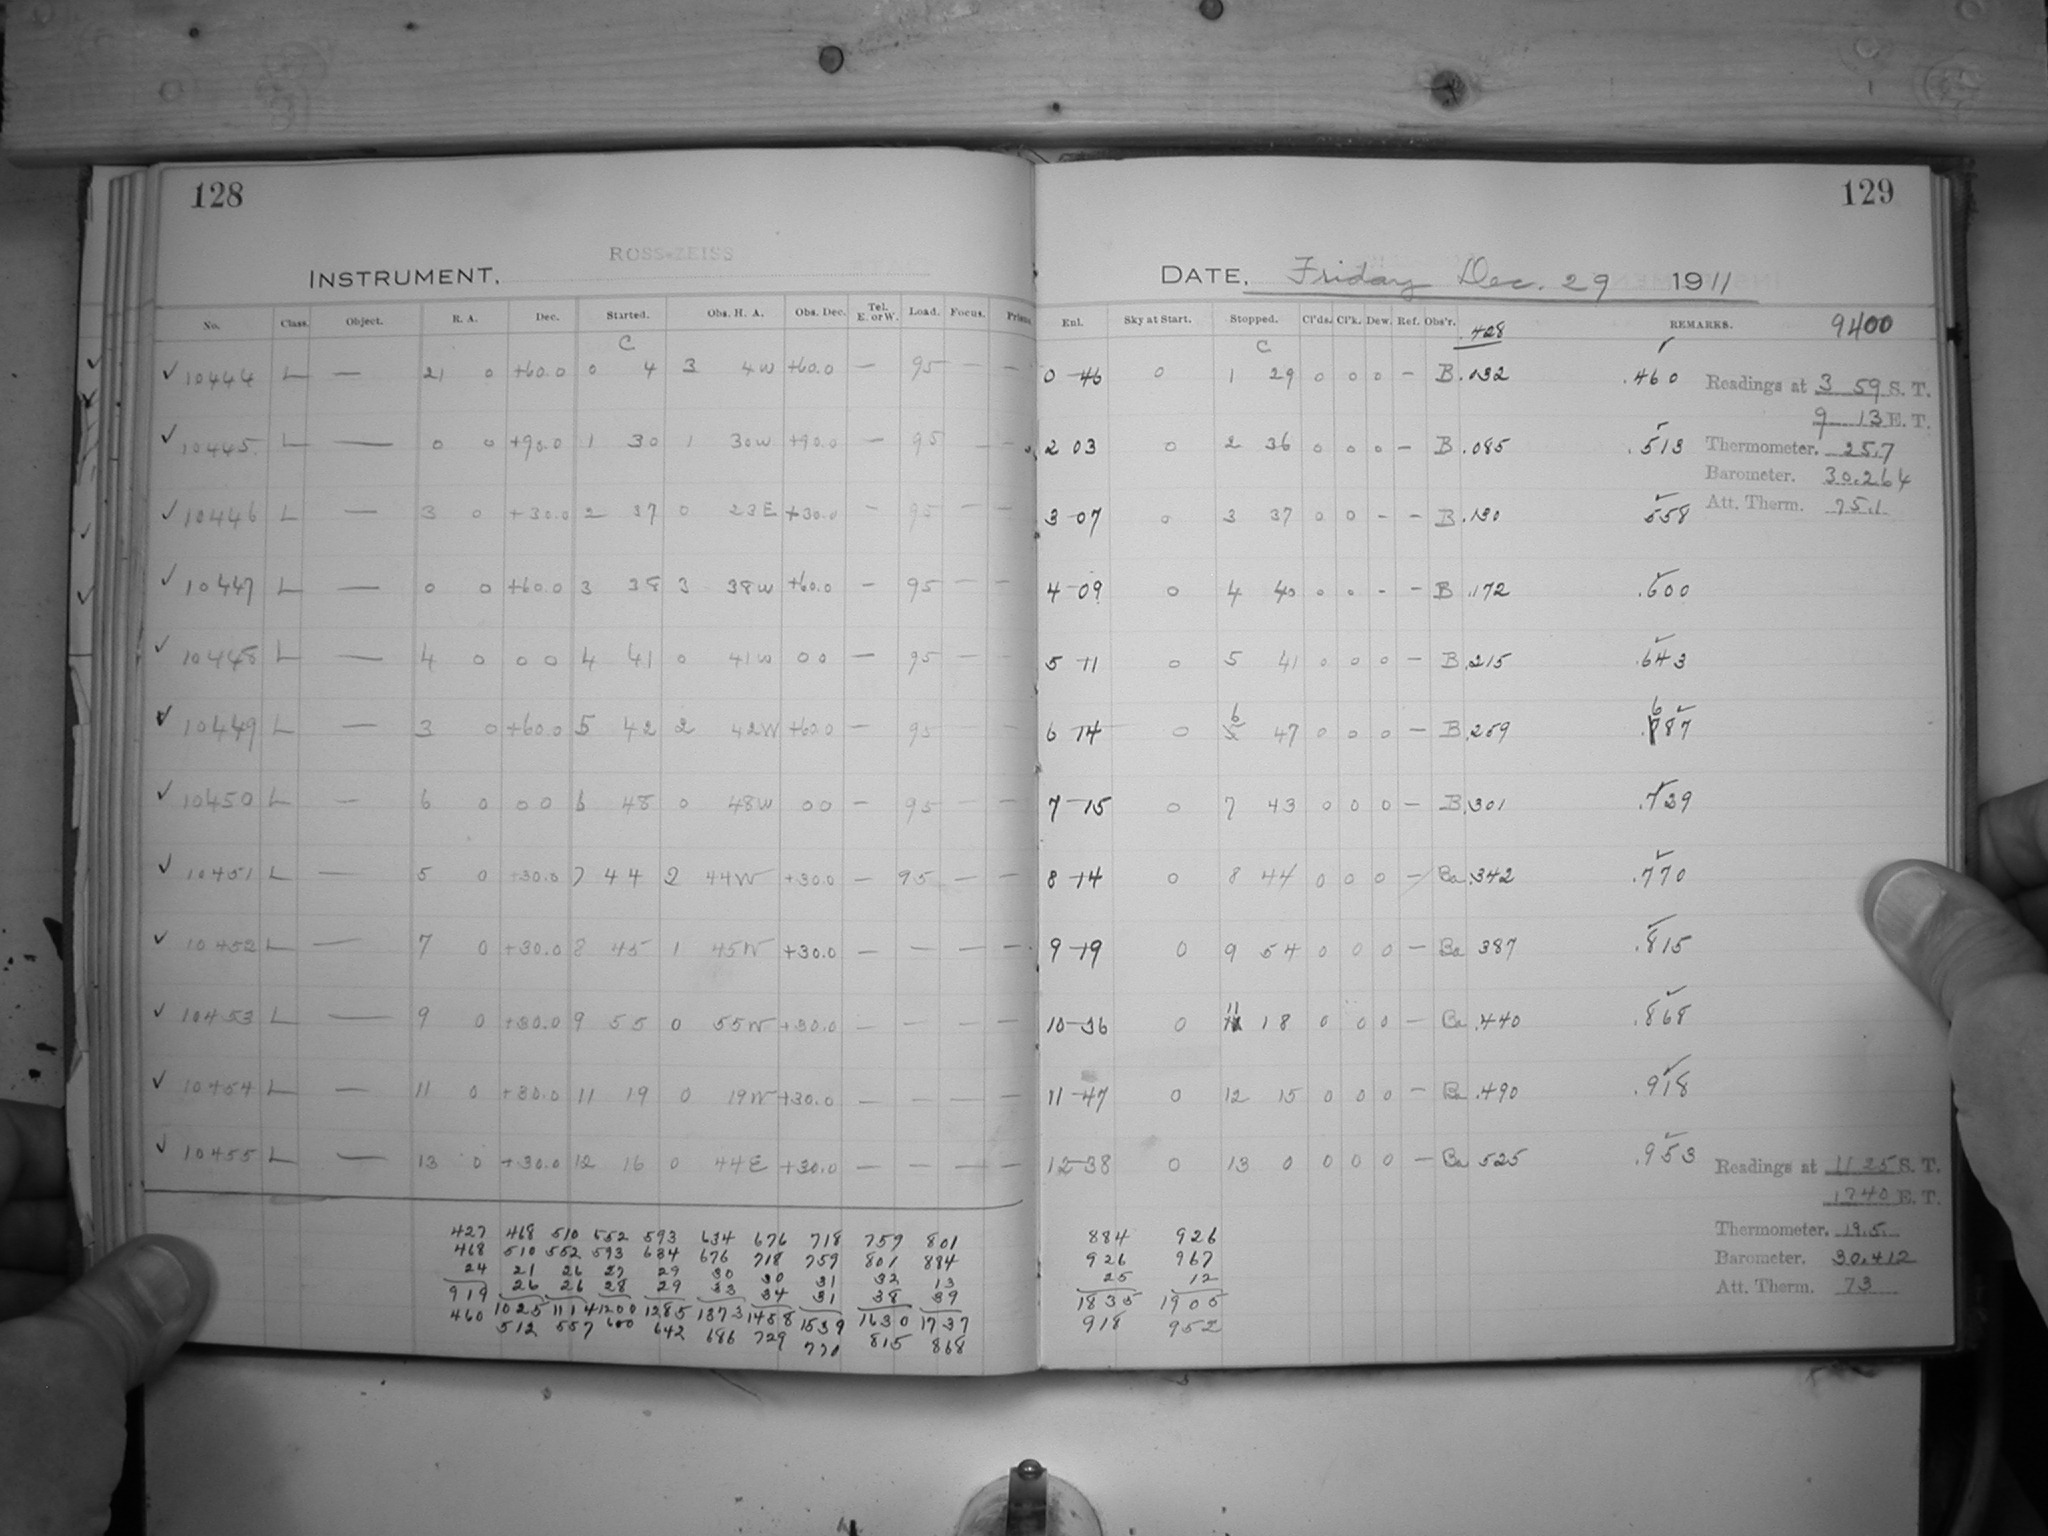 128
ROSS-ZEISS
INSTRUMENT,
No. Class. Object. R. A. Dec. Started. Obs. H. A. Obs. Dec. Tel. E. or W. Load. Focus. Prism.
C
✓ 10444 L — 21 0 +60.0 0 4 3 4W +60.0 — 95 — —
✓ 10445 L — 0 0 +90.0 1 30 1 30W +90.0 — 95 — —
✓ 10446 L — 3 0 +30.0 2 37 0 23E +30.0 — 95 — —
✓ 10447 L — 0 0 +60.0 3 38 3 38W +60.0 — 95 — —
✓ 10448 L — 4 0 0 0 4 41 0 41W 0 0 — 95 — —
✓ 10449 L — 3 0 +60.0 5 42 2 42W +60.0 — 95 — —
✓ 10450 L — 6 0 0 0 6 48 0 48W 0 0 — 95 — —
✓ 10451 L — 5 0 +30.0 7 44 2 44W +30.0 — 95 — —
✓ 10452 L — 7 0 +30.0 8 45 1 45W +30.0 — — — —
✓ 10453 L — 9 0 +30.0 9 55 0 55W +30.0 — — — —
✓ 10454 L — 11 0 +30.0 11 19 0 19W +30.0 — — — —
✓ 10455 L — 13 0 +30.0 12 16 0 44E +30.0 — — — —
427 468 510 552 593 634 676 718 759 801
468 510 552 593 634 676 718 759 801 884
24 21 26 27 29 30 30 31 32 13
26 26 28 29 33 34 31 38 39
919 1025 1114 1200 1285 1373 1458 1539 1630 1737
460 512 557 600 642 686 729 770 815 868
129
DATE, Friday Dec. 29 1911
Enl. Sky at Start. Stopped. Cl'ds. Cl'k. Dew. Ref. Obs'r. .428 REMARKS. 9400
C
0—46 0 1 29 0 0 0 — B .032 .460 Readings at 3 59 S. T.
9 13 E. T.
2 03 0 2 36 0 0 0 — B .085 .513 Thermometer. 25.7
Barometer. 30.264
3—07 0 3 37 0 0 - - B .130 558 Att. Therm. 75.1
4—09 0 4 40 0 0 - - B .172 .600
5—11 0 5 41 0 0 0 — B .215 .643
6—14 0 6 47 0 0 0 — B .259 .687
7—15 0 7 43 0 0 0 — B .301 .729
8—14 0 8 44 0 0 0 — Ba .342 .770
9—19 0 9 54 0 0 0 — Ba 387 .815
10—36 0 11 18 0 0 0 — Ba .440 .868
11—47 0 12 15 0 0 0 — Ba .490 .918
12—38 0 13 0 0 0 0 — Ba 525 .953 Readings at 11 25 S. T.
1740 E. T.
Thermometer. 19.5
Barometer. 30.412
Att. Therm. 73
884 926
926 967
25 12
1835 1905
918 952